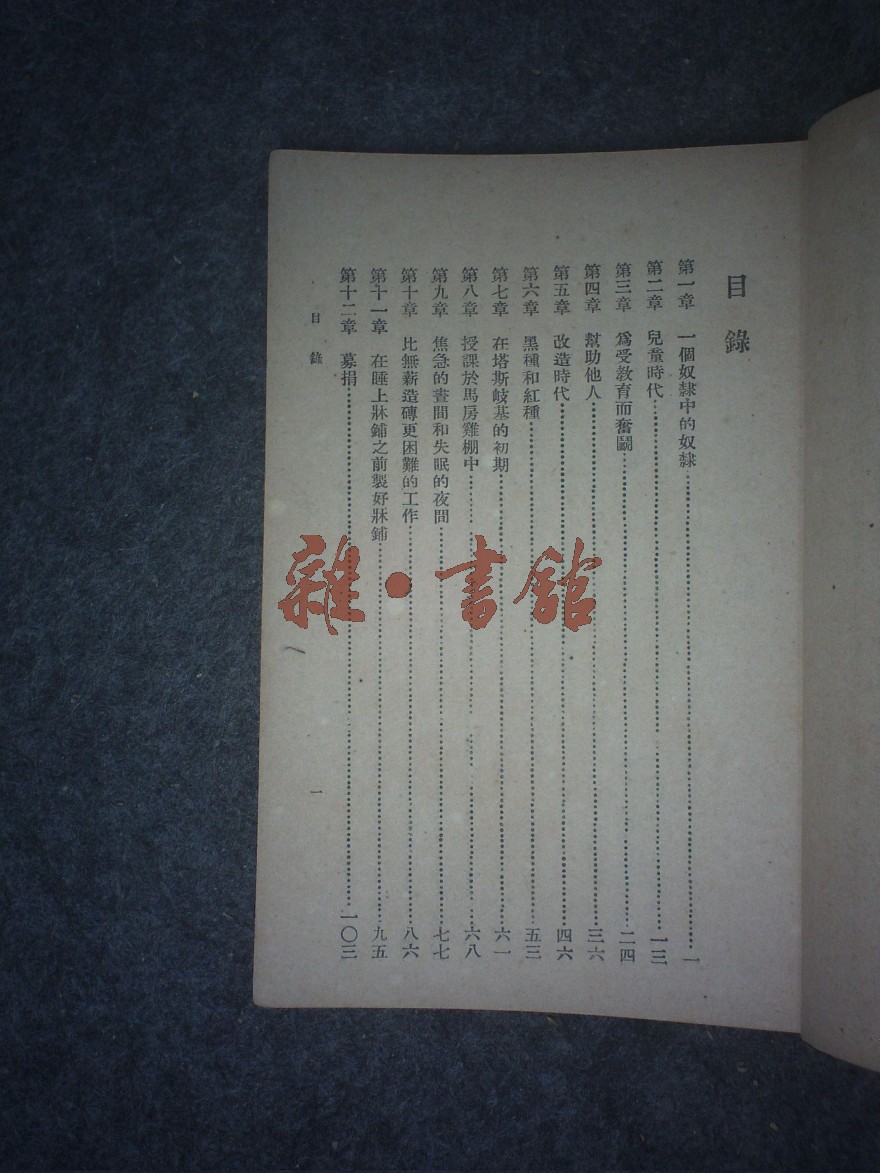 目錄
第一章 一個奴隸中的奴隸 一
第二章 兒童時代 一三
第三章 爲受教育而奮鬭 二四
第四章 幫助他人 三六
第五章 改造時代 四六
第六章 黑種和紅種 五三
第七章 在塔斯岐基的初期 六一
第八章 授課於馬房雞棚中 六八
第九章 焦急的晝間和失眠的夜間 七七
第十章 比無薪造磚更困難的工作 八六
第十一章 在睡上牀鋪之前製好牀鋪 九五
第十二章 募捐 一〇三
目錄 一
雜·書館